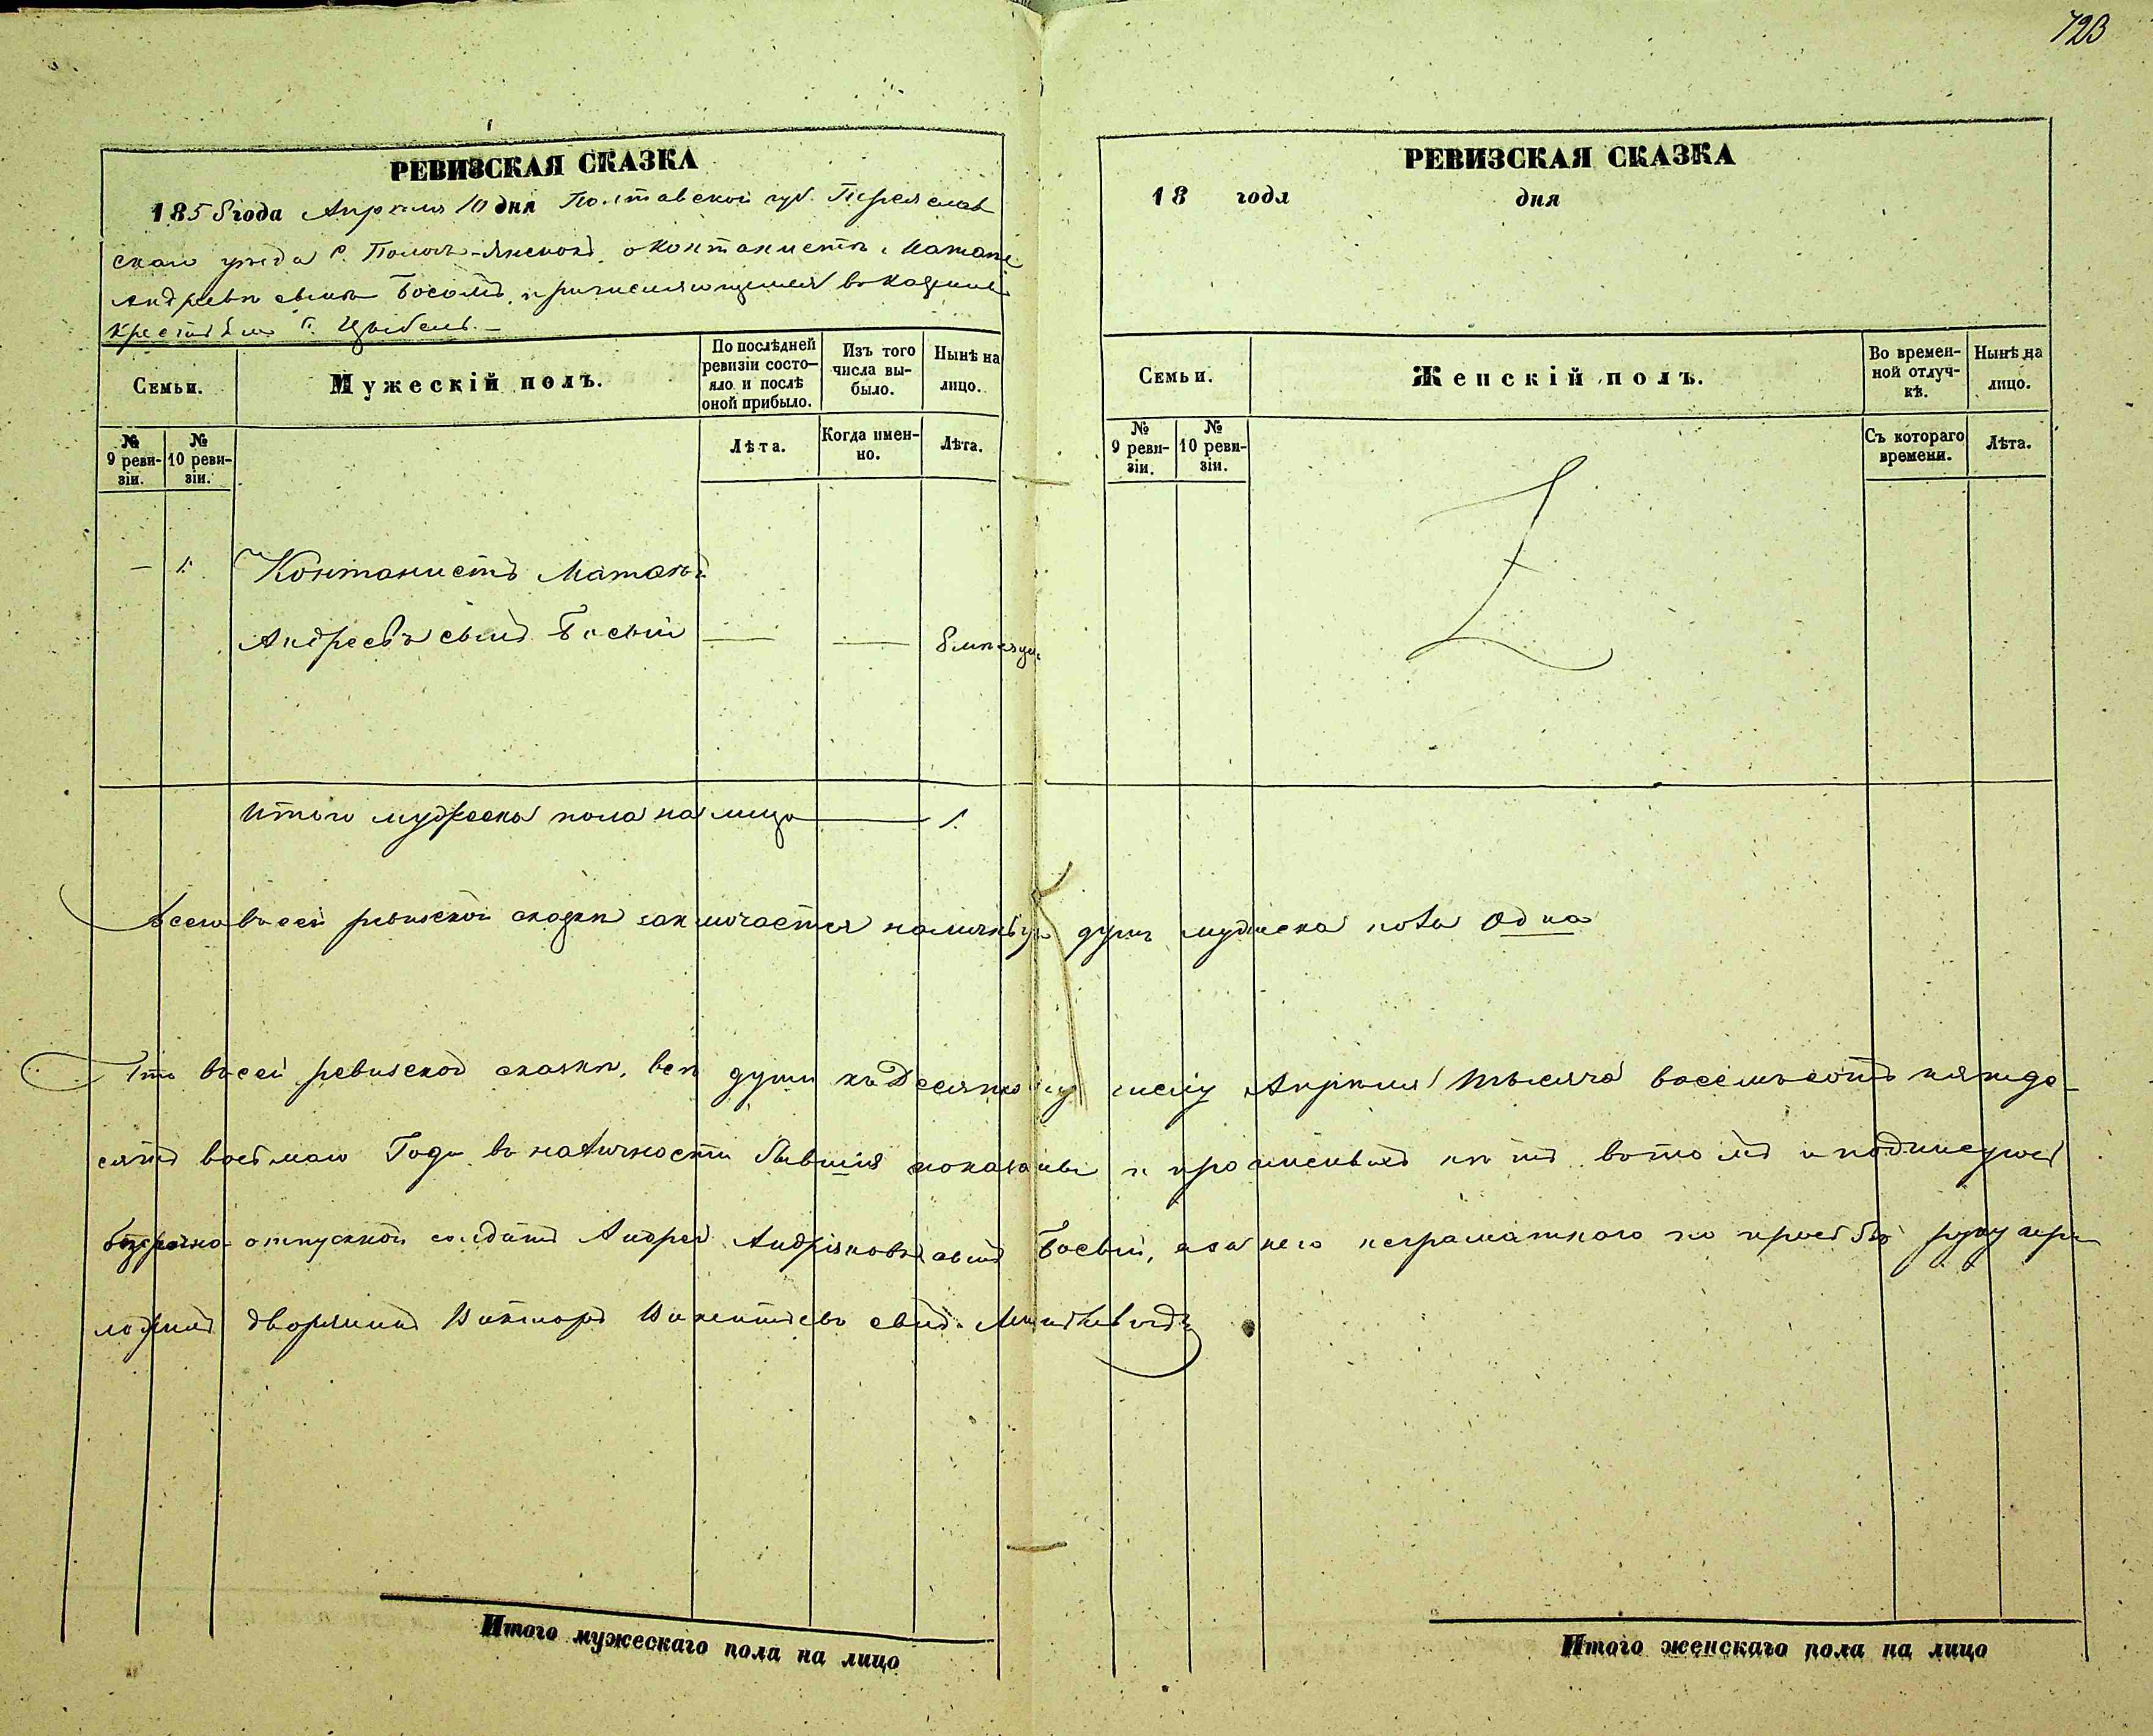 723
РЕВИЗСКАЯ СКАЗКА
1858 года Апреля 10 дня Полтавской губ. Переяслав
скаго уезда С. Помокъ
Андреевъ сынъ Босомъ, причисляющемся въ казенные
С. Цыбель.
Семьи.
Мужескій полъ.
По послѣдней ревизіи состояло и послѣ оной прибыло.
Изъ того числа выбыло.
Нынѣ на лицо.
№ 9 ревизіи.
№ 10 ревизіи.
Лѣта.
Когда именно.
Лѣта.
— 1. Контонистъ
Андреевъ сынъ Босый — — 8
Итого мужеска пола на лицо — 1.
РЕВИЗСКАЯ СКАЗКА
18 года дня
Семьи.
Женскій полъ.
Во временной отлучкѣ.
Нынѣ на лицо.
№ 9 ревизіи.
№ 10 ревизіи.
Съ котораго времени.
Лѣта.
Всего въ сей ревизской сказки заключается наличныхъ душъ мужеска пола одна
Что въ сей ревизской сказки, все души къ Десятому числу Апреля тысяча восемьсотъ пятде
сятъ восьмаго Года въ наличности бывшія показаны и прописныхъ нетъ въ томъ и подписуюсъ
безсрочно отпускной солдатъ Андрей сынъ Босый, а за него неграматнаго по прозбе руку при
ложилъ дворянинъ Викторъ Викентіевъ сынъ
Итого мужескаго пола на лицо
Итого женскаго пола на лицо